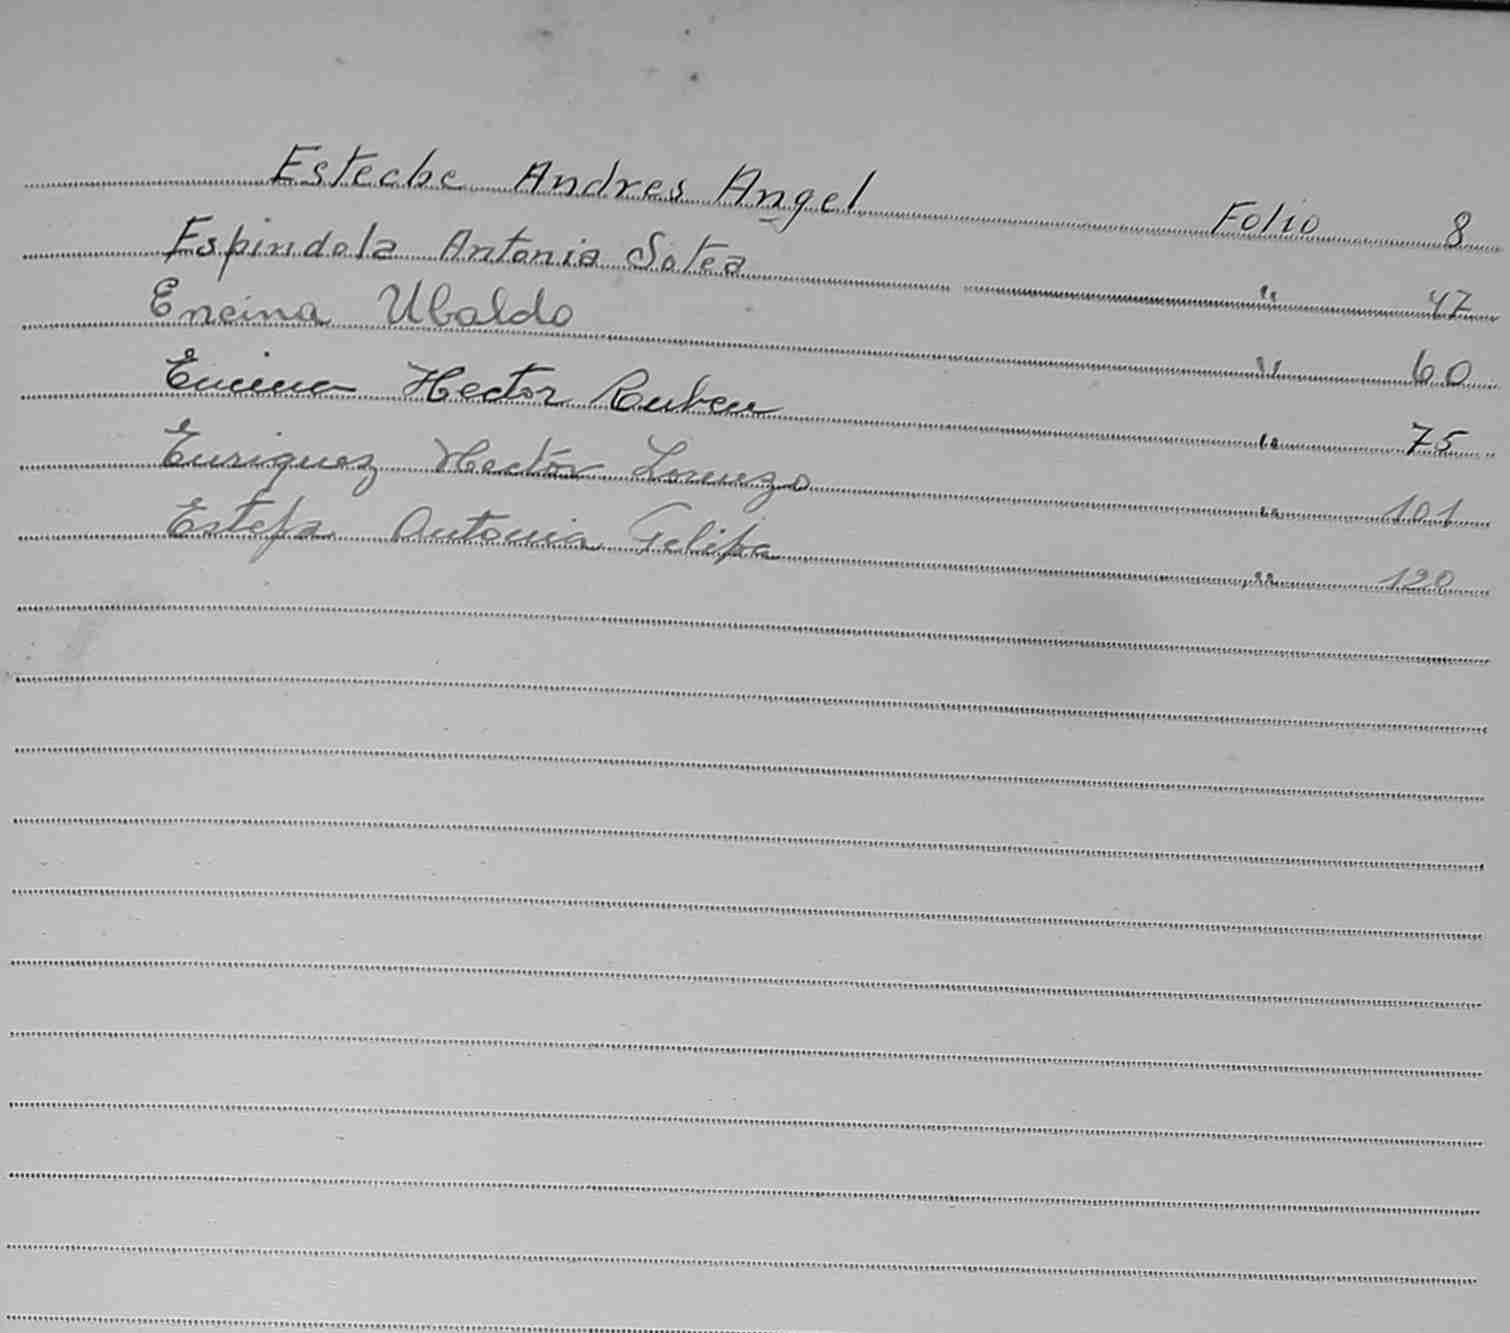 Esteche Andres Angel Folio 8
Espindola Antonia Sotea " 47
Encina Ubaldo " 60
Encina Hector Ruben " 75
Enriquez Hector Lorenzo " 101
Estepa Antonia Felipa " 120